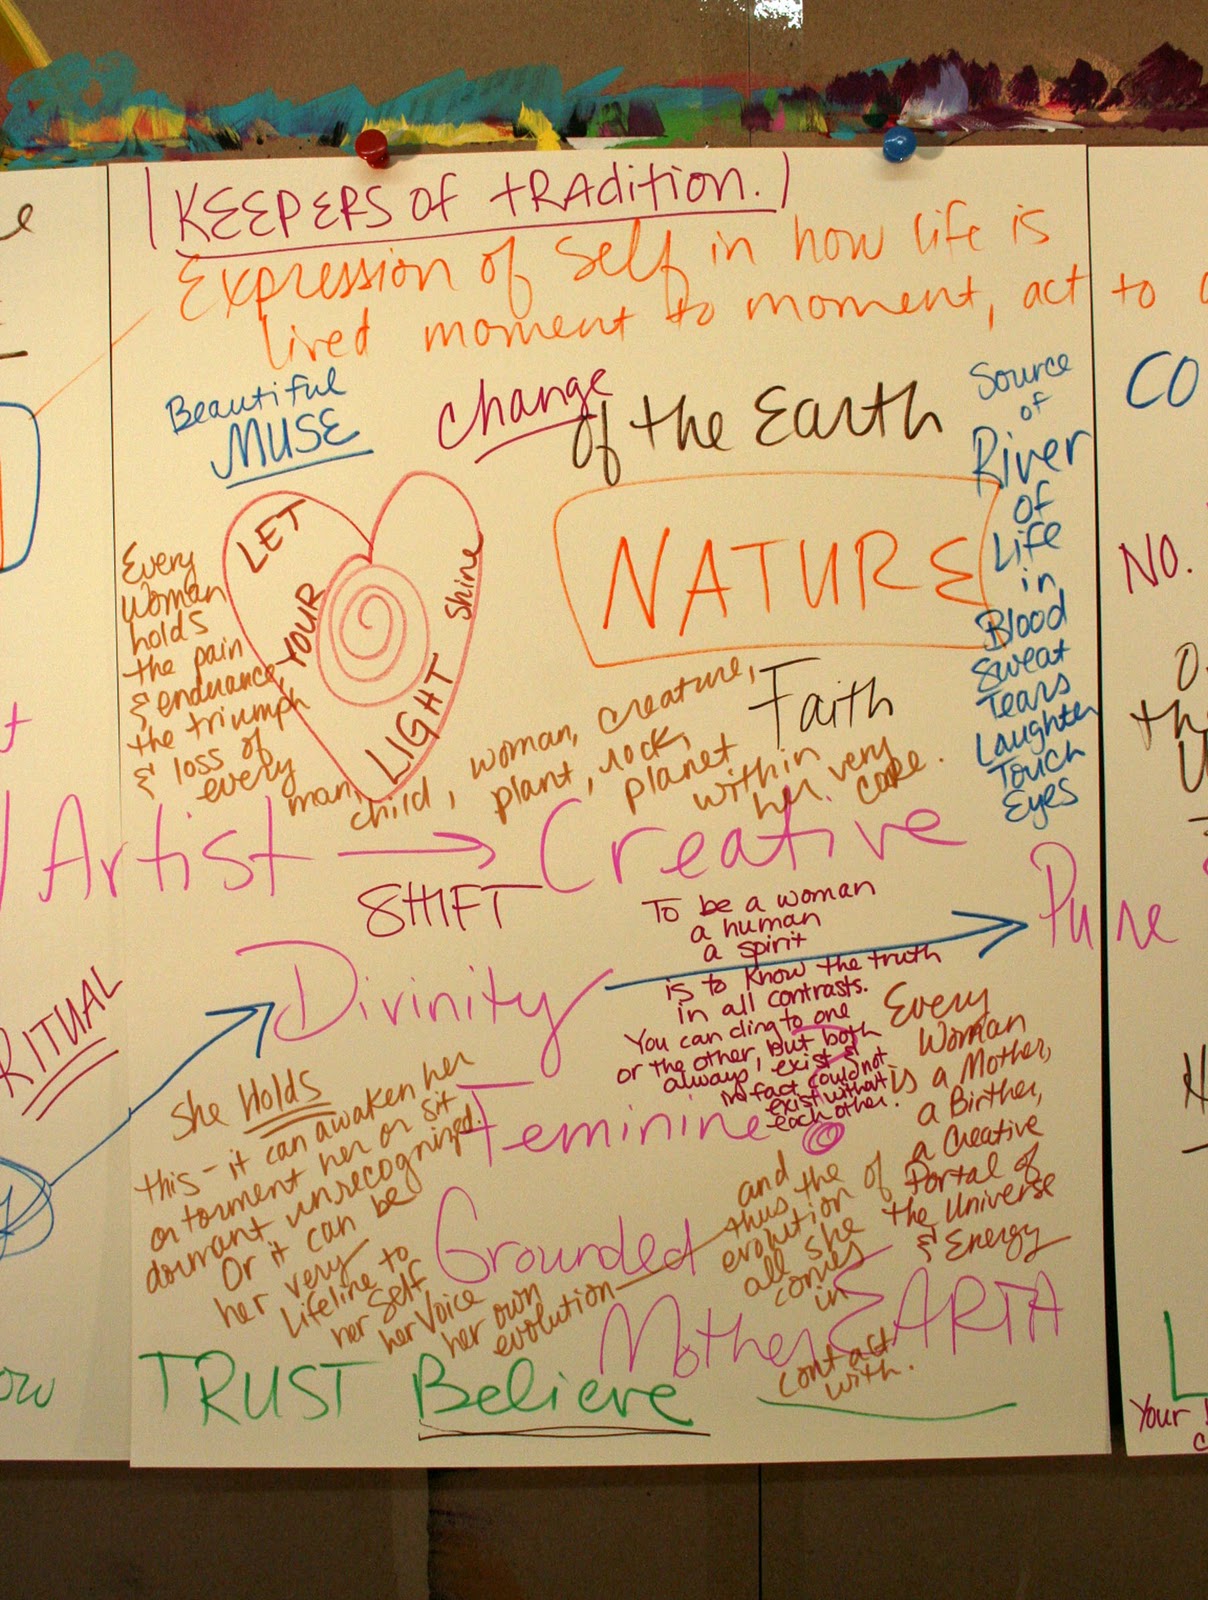 KEEPERS of tRAdition.
Expression of Self in how life is
lived moment to moment, act to
Beautiful
MUSE
change
of the Earth
Source
of
River
of
Life
in
Blood
Sweat
Tears
Laughter
Touch
Eyes
LET
YOUR
LIGHT
Shine
NATURE
Every
Woman
holds
the pain
& endurance,
the triumph
& loss of
every
man,
child, woman, creature,
plant, rock,
planet
within
her very
core.
Faith
Artist → Creative
SHIFT
To be a woman
a human
a spirit
is to know the truth
in all contrasts.
You can cling to one
or the other, but both
always exist &
in fact could not
exist without
each other.
Divinity
Pure
RITUAL
Feminine
Every
Woman
is a Mother,
a Birther,
a Creative
Portal of
the Universe
& Energy
She Holds
this - it can awaken her
or torment her or sit
dormant unrecognized.
Or it can be
her very
Lifeline to
her Self
her Voice
her own
evolution
and
thus the
evolution of
all she
comes
in
contact
with.
Grounded
Mother EARTH
TRUST Believe
CO
NO.
Your